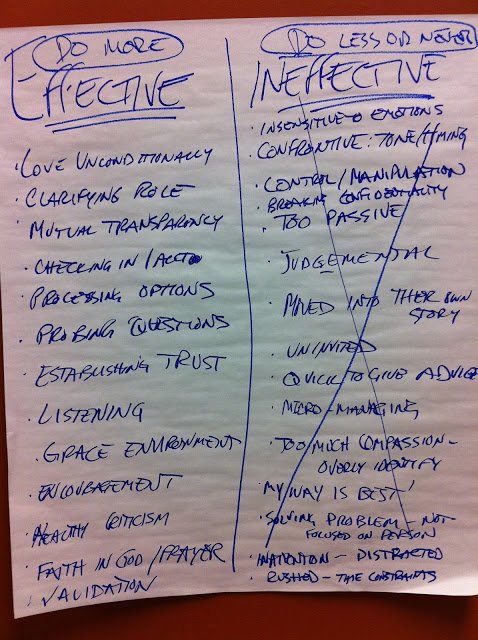 DO MORE
EFFECTIVE
· LOVE UNCONDITIONALLY
· CLARIFYING ROLE
· MUTUAL TRANSPARENCY
· CHECKING IN / ACCT
· PROCESSING OPTIONS
· PROBING QUESTIONS
· ESTABLISHING TRUST
· LISTENING
· GRACE ENVIRONMENT
· ENCOURAGEMENT
· HEALTHY CRITICISM
· FAITH IN GOD / PRAYER
· VALIDATION
DO LESS OR NEVER
INEFFECTIVE
· INSENSITIVE TO EMOTIONS
· CONFRONTIVE: TONE/TIMING
· CONTROL / MANIPULATION
· BREAKING CONFIDENTIALITY
· TOO PASSIVE
· JUDGEMENTAL
· MOVED INTO THEIR OWN
STORY
· UNINVITED
· QUICK TO GIVE ADVICE
· MICRO-MANAGING
· TOO MUCH COMPASSION -
OVERLY IDENTIFY
· "MY WAY IS BEST"
· SOLVING PROBLEM - NOT
FOCUSED ON PERSON
· INATTENTION - DISTRACTED
· RUSHED - TIME CONSTRAINTS